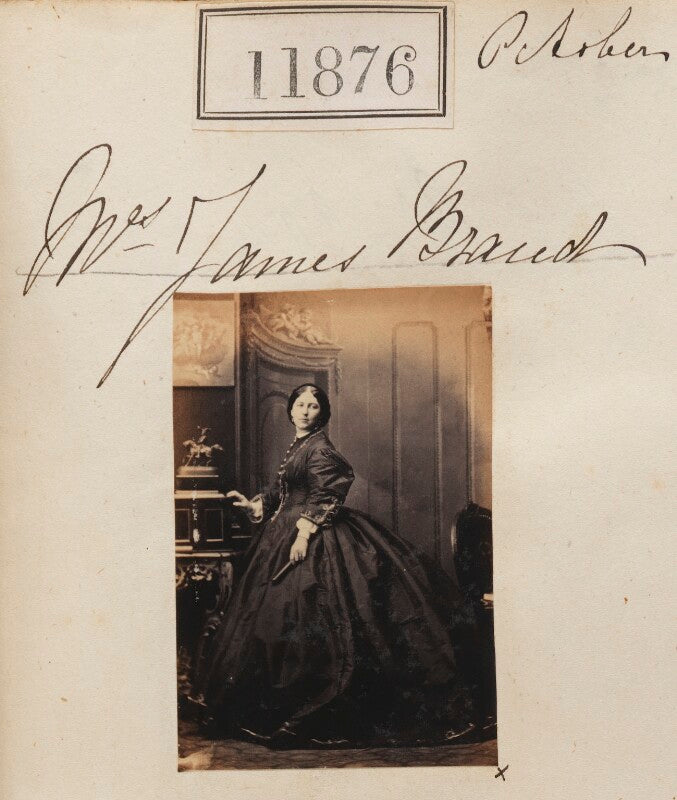 11876
October
Mrs James Brand
x